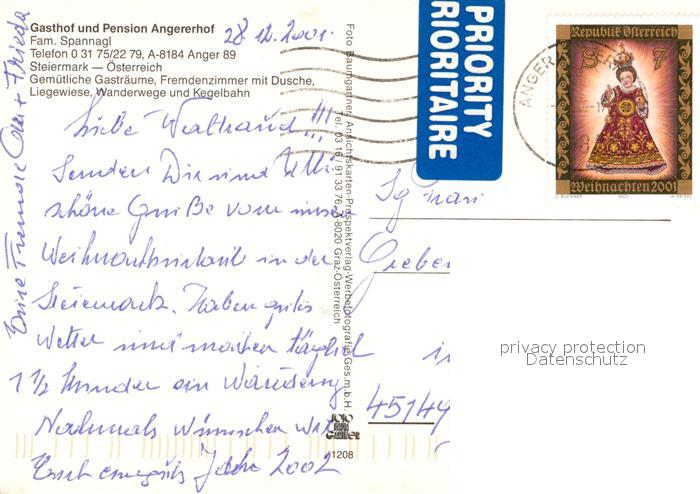 Gasthof und Pension Angererhof
Fam. Spannagl
Telefon 0 31 75/22 79, A-8184 Anger 89
Steiermark — Österreich
Gemütliche Gasträume, Fremdenzimmer mit Dusche,
Liegewiese, Wanderwege und Kegelbahn
28.12.2001.
Liebe Waltraud!!!
Senden Dir und Ulli
schöne Grüße vom
Weihnachtsurlaub in der
Steiermark. Haben gutes
Wetter und machen täglich
1 1/2 Stunden ein Wanderung
Nochmals wünschen wir
Euch ein gutes Jahr 2002
Eure Freunde + Frieda
Foto Baumgartner, Ansichtskarten-Prospektverlag-Werbefotografie Ges.m.b.H.
Tel. 03 16 / 91 33 76, A-8020 Graz-Österreich
FOTO
1208
PRIORITY
PRIORITAIRE
ANGER
Republik Österreich
S 7
Weihnachten 2001
2001
45149
privacy protection
Datenschutz